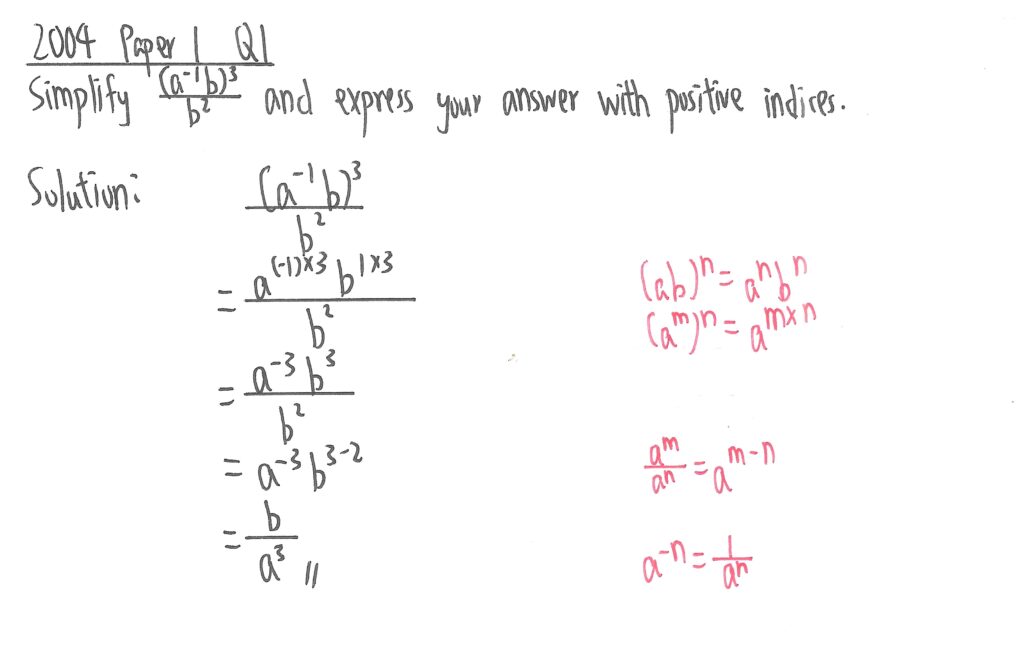 2004 Paper 1 Q1
Simplify (a⁻¹b)³/b² and express your answer with positive indices.
Solution: (a⁻¹b)³/b²
= a⁽⁻¹⁾ˣ³ b¹ˣ³/b²
(ab)ⁿ = aⁿbⁿ
(aᵐ)ⁿ = aᵐˣⁿ
= a⁻³b³/b²
= a⁻³b³⁻²
aᵐ/aⁿ = aᵐ⁻ⁿ
= b/a³ //
a⁻ⁿ = 1/aⁿ